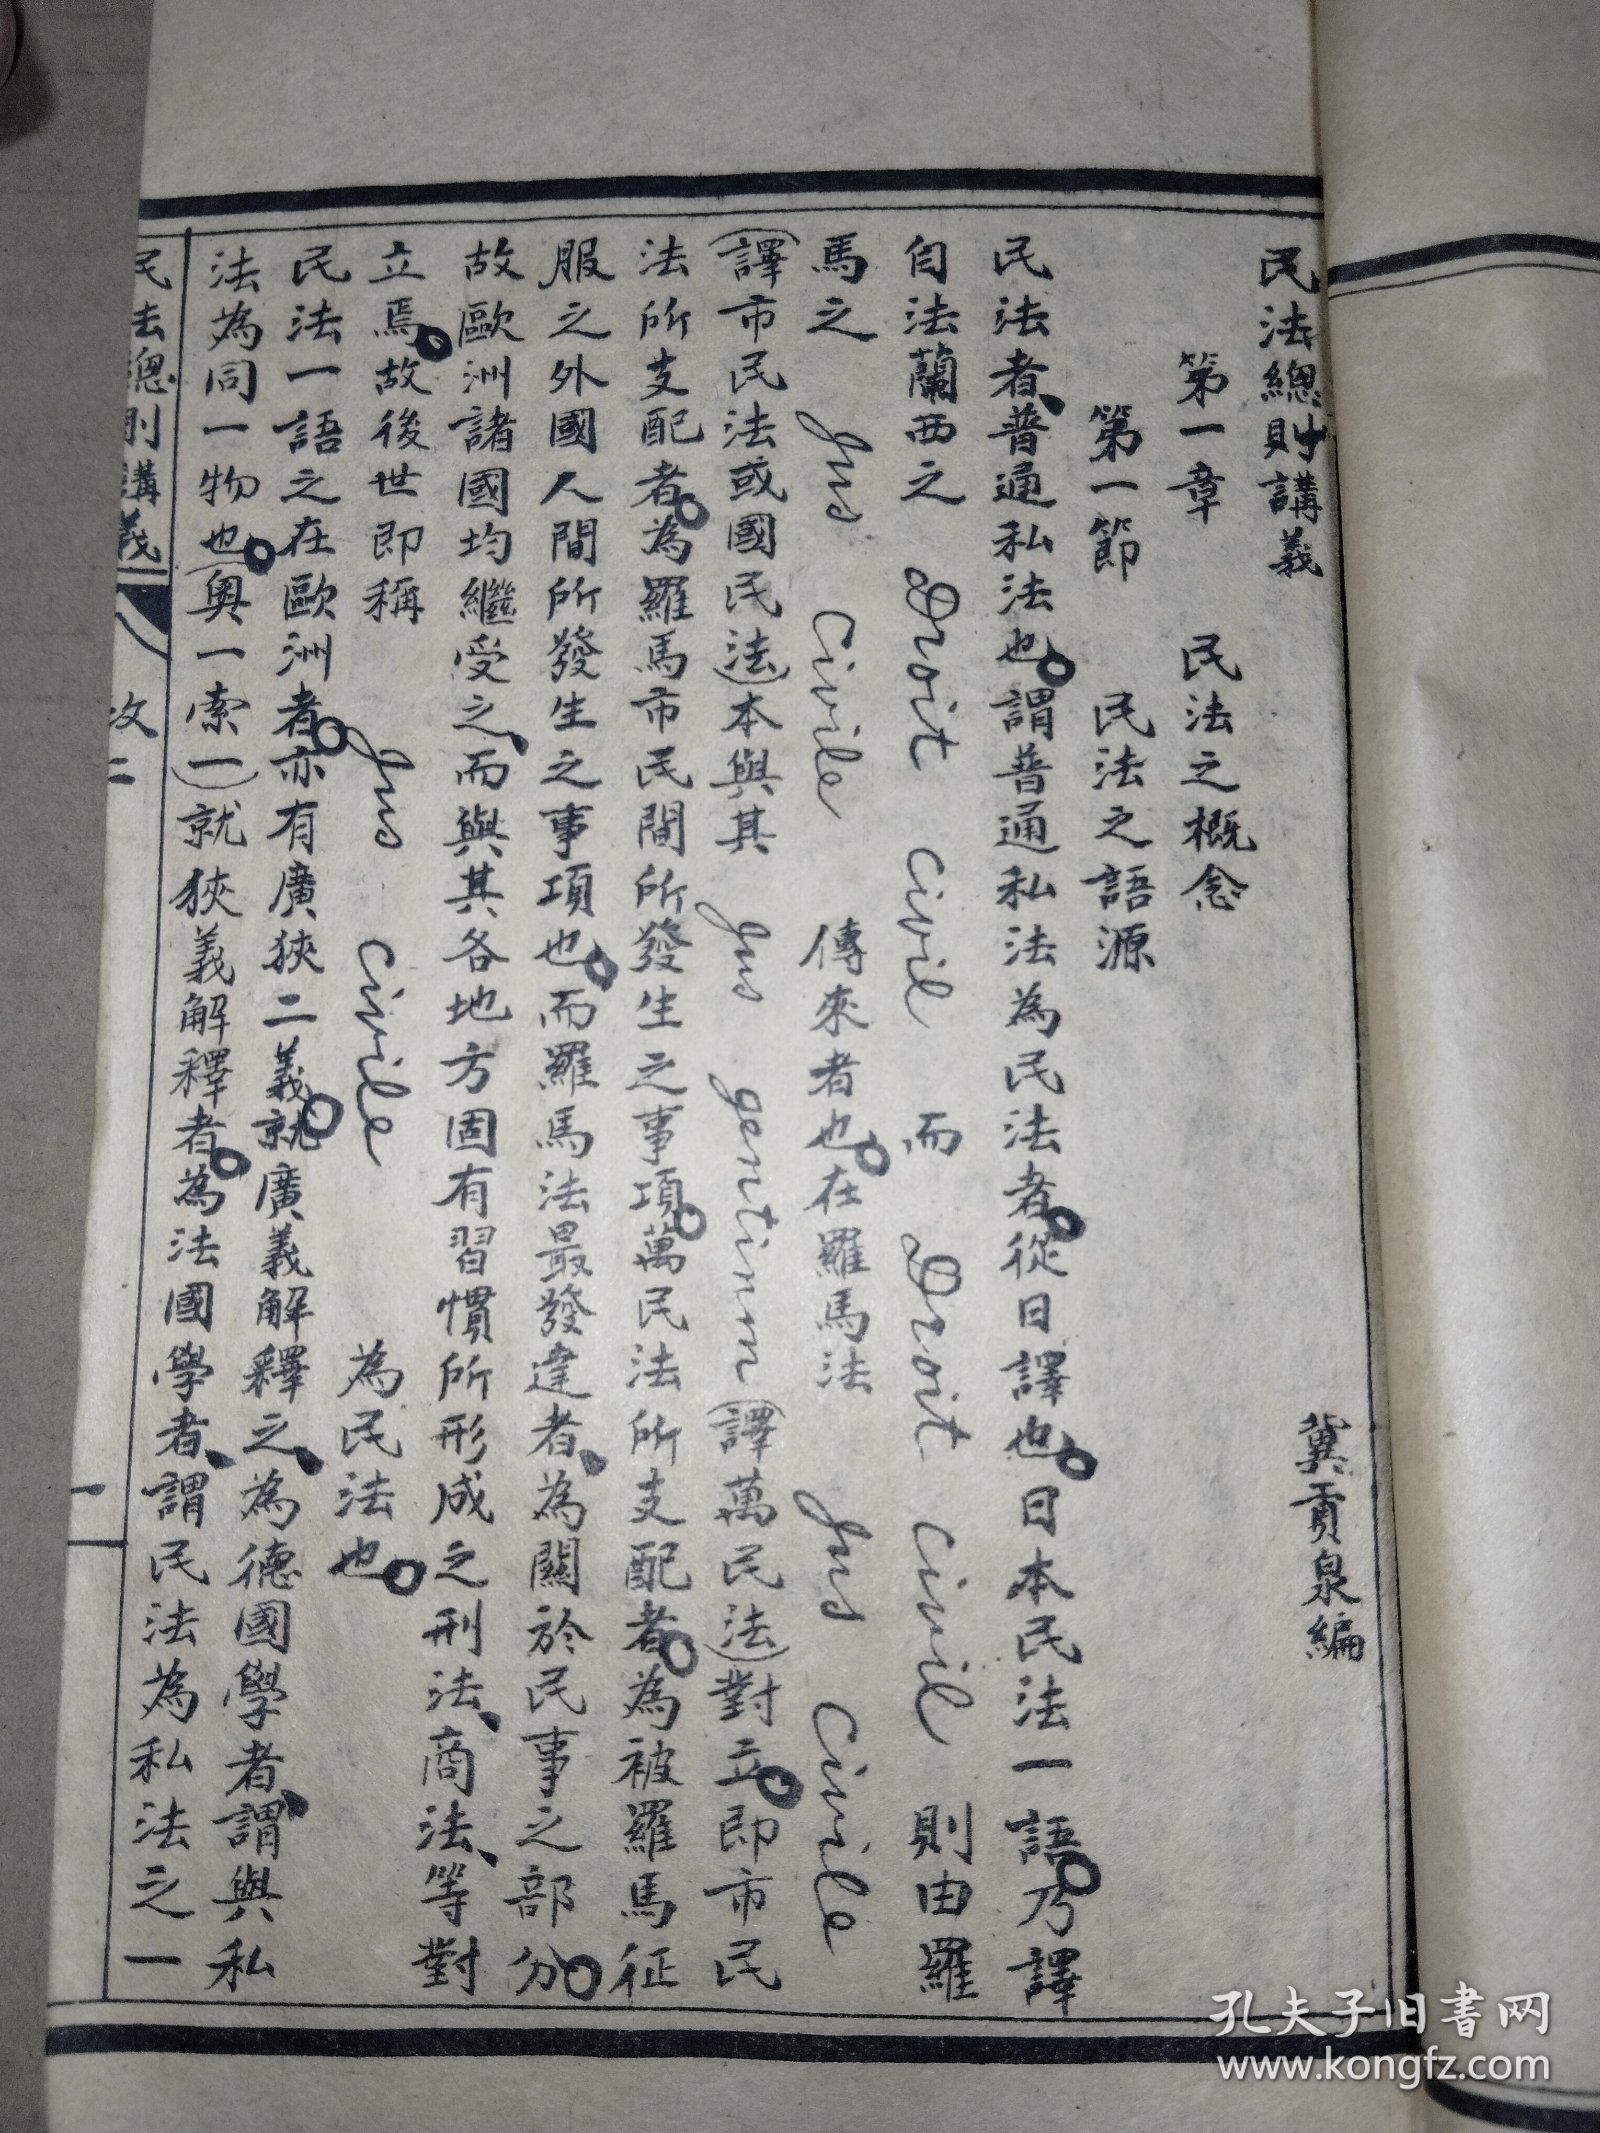 民法總則講義
冀貢泉編
第一章　民法之概念
第一節　民法之語源
民法者、普通私法也。謂普通私法為民法者。從日譯也。日本民法一語。乃譯
自法蘭西之 Droit civil 而 Droit civil 則由羅
馬之 Jus Civile 傳來者也。在羅馬法 Jus Civile
(譯市民法或國民法)本與其 Jus gentinm (譯萬民法)對立。即市民
法所支配者。為羅馬市民間所發生之事項。萬民法所支配者。為被羅馬征
服之外國人間所發生之事項也、而羅馬法最發達者、為關於民事之部分。
故歐洲諸國均繼受之、而與其各地方固有習慣所形成之刑法、商法、等對
立焉。故後世即稱 Jus civile 為民法也。
民法一語之在歐洲者。亦有廣狹二義。就廣義解釋之、為德國學者、謂與私
法為同一物也。(奧一索一)就狹義解釋者。為法國學者、謂民法為私法之一
民法總則講義
改二
一
孔夫子旧书网
www.kongfz.com